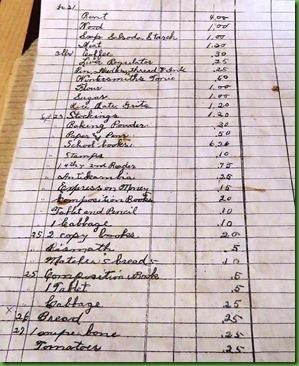 Rent 4.00
Wood 1.00
Soap Salsoda, Starch 1.00
Meat 1.20
Coffee 30
Liver Regulator .25
Pen, Thread & Ink .25
Wintersmiths Tonic .50
Flour 1.00
Sugar 1.00
Rice Oats, Grits 1.20
Stockings 1.20
Baking Powder .20
Paper Pens 50
School books
Stamps .10
1 4th & 2nd Reader .75
Antikamnia .25
Express on Money .15
Composition Books 20
Tablet and Pencil .10
1 Cabbage .10
25 2 copy books .20
Bismath .5
Matches 5 bread 5 .10
25 Composition Book .5
1 Tablet .5
Cabbage .25
x 26 Bread .25
27 1 soupe bone .25
Tomatoes .25